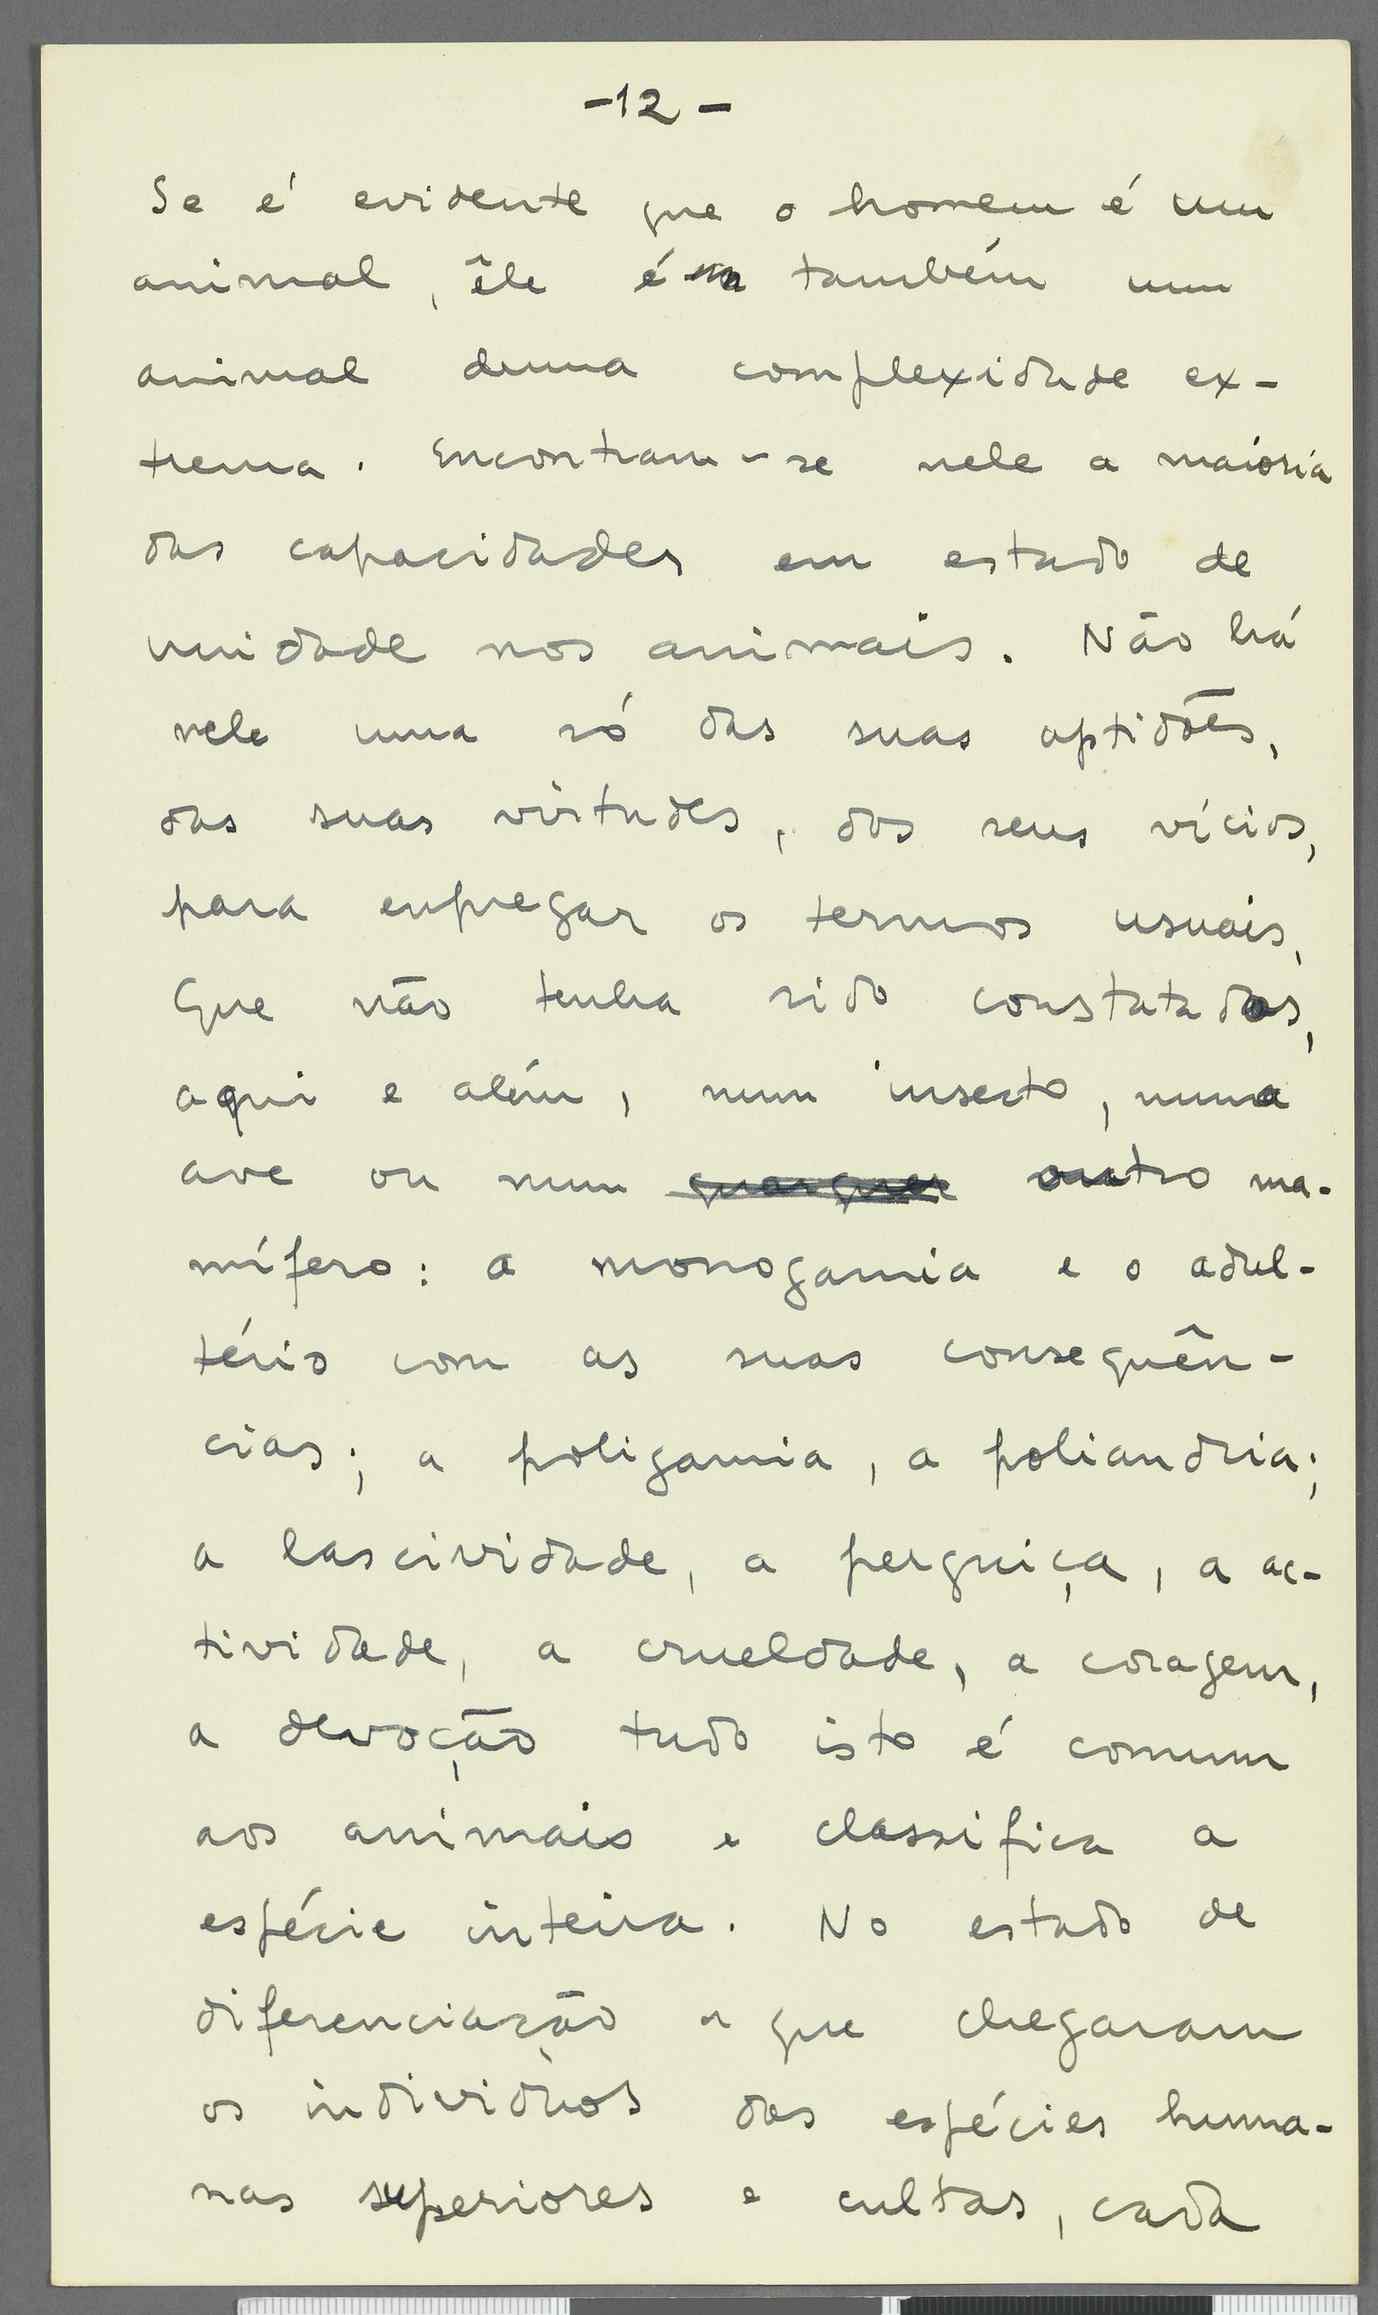 -12-
Se é evidente que o homem é um
animal, êle é também um
animal duma complexidade ex-
trema. Encontram-se nele a maioria
das capacidades em estado de
unidade nos animais. Não há
nele uma só das suas aptidões,
das suas virtudes, dos seus vícios,
para empregar os termos usuais,
Que não tenha sido constatados,
aqui e além, num insecto, numa
ave ou num quarquer outro ma-
mífero: a monogamia e o adul-
tério com as suas consequên-
cias; a poligamia, a poliandria;
a lascividade, a perguiça, a ac-
tividade, a crueldade, a coragem,
a devoção tudo isto é comum
aos animais e classifica a
espécie inteira. No estado de
diferenciação a que chegaram
os individuos das espécies huma-
nas superiores e cultas, cada